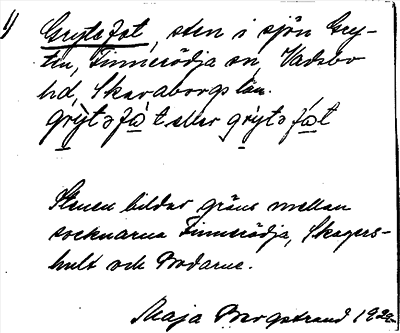 1)
Grytefot, sten i sjön Gry-
ten, Finnerödja sn, Vadsbo
hd, Skaraborgs län.
grỳtəfò̤t eller grỳtəfó̤t
Stenen bildar gräns mellan
socknarna Finnerödja, Skagers-
hult och Bodarne.
Maja Bergstrand 1929